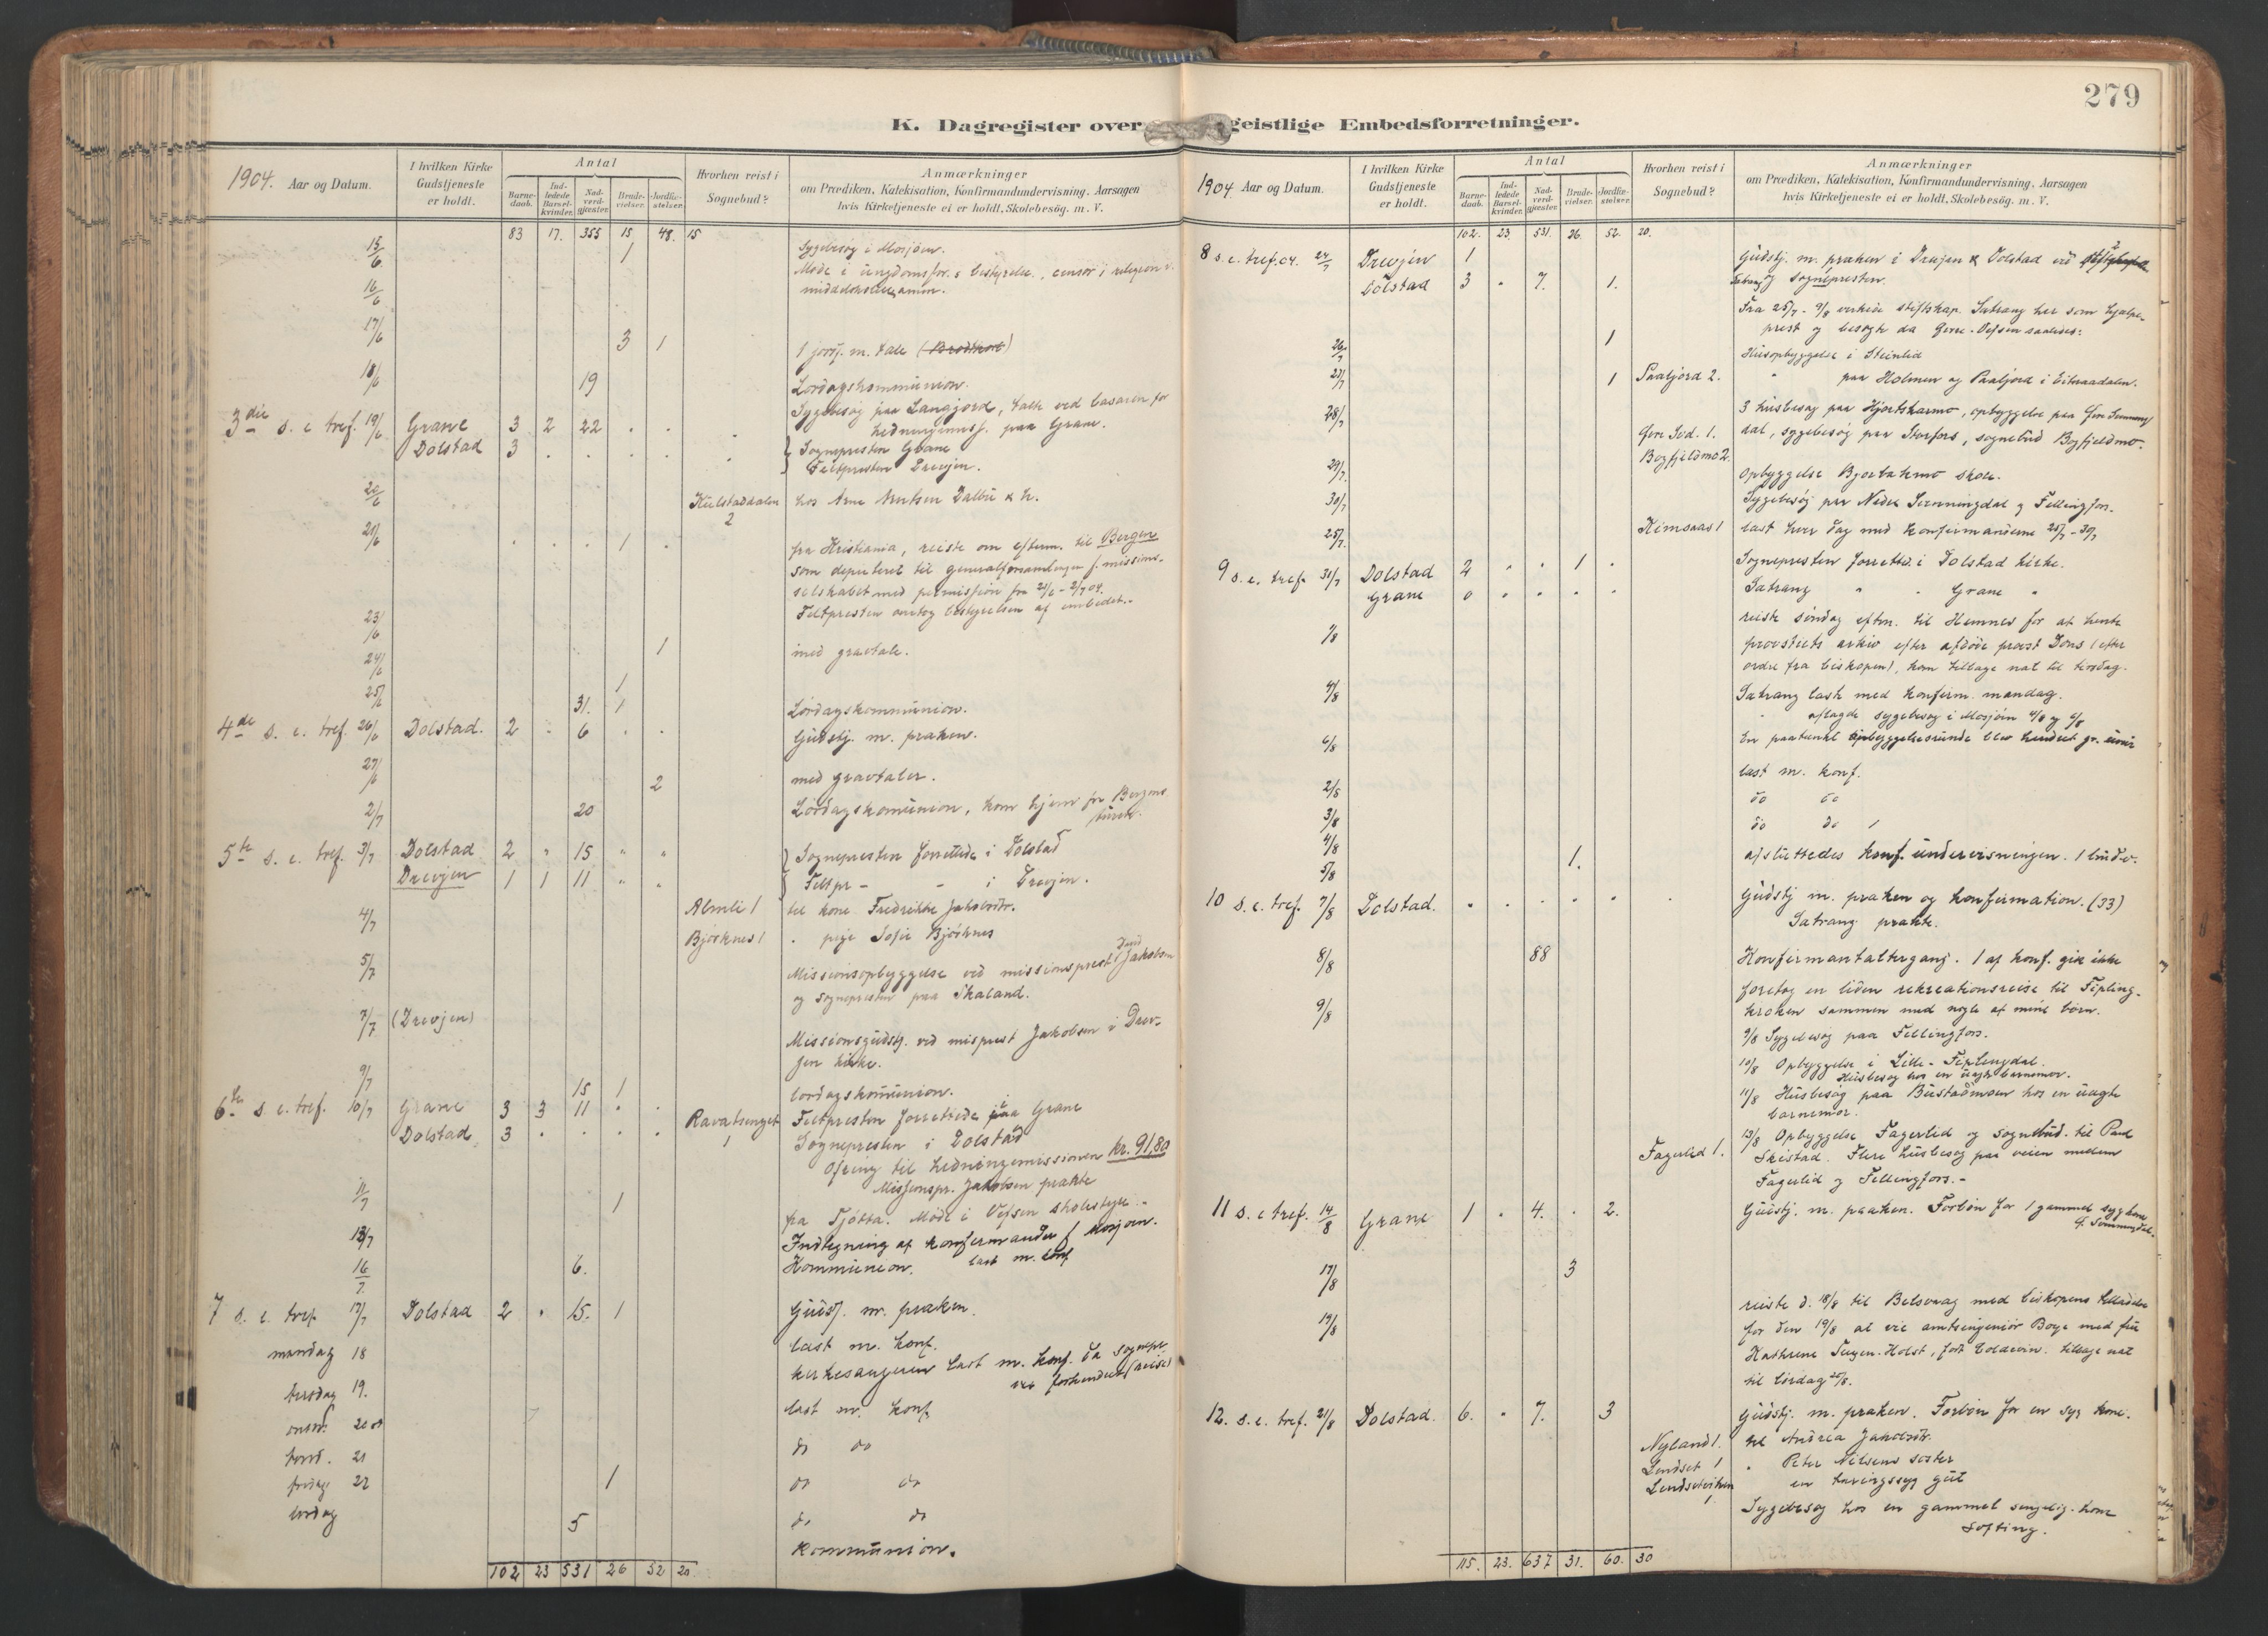 279
K. Dagregister over geistlige Embedsforretninger.
1904. Aar og Datum.
I hvilken Kirke Gudstjeneste er holdt.
Antal
Barne-daab.
Ind-ledede Barsel-kvinder.
Nad-verd-gjæster.
Brude-vielser.
Jordfæ-stelser.
Hvorhen reist i Sognebud?
Anmærkninger
om Prædiken, Katekisation, Konfirmandundervisning, Aarsagen
hvis Kirketjeneste ei er holdt, Skolebesög. m. V.
83 17. 355 15 48. 15
15/6 1 Sygebesøg i Mosjøen.
Møde i ungdomsfor.s bestyrelse, censor i religion v.
16/6 middelskoleexamen.
17/6 3 1 1 jordf. m. tale
18/6 19 Lørdagskommunion.
Sygebesøg paa Langjord, talte ved basaren for
3die s. e. tref. 19/6 Grane 3 2 22 hedningemiss. paa Grane.
Dolstad 3 Sognepresten Grane
Feltpresten Drevjen.
20/6 Kulstaddalen 2 hos Arne Knutsen Dalbu & h.
21/6 1 fra Kristiania, reiste om efterm. til Bergen
som deputeret til generalforsamlingen f. missions-
selskabet med permission fra 21/6 - 2/7 04.
Feltpresten overtog bestyrelsen af embedet.
23/6 1 med gravtale.
24/6 1
25/6 31. 1 Lørdagskommunion.
4de s. e. tref. 26/6 Dolstad. 2 6 Gudstj. m. præken.
27/6 2 med gravtaler.
2/7 20 Lørdagskomunion, kom hjem fra Bergens
turen.
5te s. e. tref. 3/7 Dolstad 2 " 15 " " Sognepresten forrettede i Dolstad
Drevjen 1 1 11 " " Feltpr - - i Drevjen.
4/7 Almli 1 til kone Fredrikke Jakobsdtr.
Bjørknes 1 " pige Sofie Bjørknes
5/7 Missionsopbyggelse ved missionsprest Jakobsen
og sognepresten paa Skaland.
7/7 (Drevjen) Missionsgudstj. ved misprest Jakobsen i Drev-
jen kirke.
9/7 15 1 lørdagskomunion.
6te s. e. tref. 10/7 Grane 3 3 11 Feltpresten forrettede paa Grane
Dolstad 3 1 Sognepresten i Dolstad
Ofring til hedningemissionen kr. 91,80
Missjonspr. Jakobsen prækte
11/7 1 fra Tjøtta. Møde i Vefsen skolestyre -
13/7 Indtegning af konfirmander f Mosjøen.
16/7 6. Kommunion. læst m. konf.
7 s. e. tref 17/7 Dolstad 2 15. 1 Gudstj. m. præken.
mandag 18 læst m. konf.
tirsdag 19. kirkesangeren læst m. konf. da sognepr.
var forhindret (reise)
onsd. 20 læst m. konf.
torsd. 21 do do
fredag 22 1 do do
lørdag 5 do do
kommunion.
102 23 531 26 52 20
1904 Aar og Datum.
I hvilken Kirke Gudstjeneste er holdt.
Antal
Barne-daab.
Ind-ledede Barsel-kvinder.
Nad-verd-gjæster.
Brude-vielser.
Jordfæ-stelser.
Hvorhen reist i Sognebud?
Anmærkninger
om Prædiken, Katekisation, Konfirmandundervisning, Aarsagen
hvis Kirketjeneste ei er holdt, Skolebesög. m. V.
102. 23. 531. 26. 52. 20.
8 s. e. tref. 24/7 Drevjen 1 Gudstj. m. præken i Drevjen & Dolstad ved
Dolstad 3 7. 1. Satrang og sognepresten.
Fra 25/7 - 9/8 virkede stiftskap. Satrang her som hjælpe-
prest og besøgte da Øvre-Vefsen saaledes:
26/7 1 Husopbyggelse i Steinlid
27/7 1 Paaljord 2. " paa Holmen og Paaljord i Eiteraadalen.
28/7 3 husbesøg paa Hjortskarmo, opbyggelse paa Øvre Svenning
Øvre Svd. 1. dal, sygebesøg paa Storfors, sognebud Bogfjeldmo.
Bogfjeldmo 2.
29/7. Opbyggelse Bjortakmo skole.
30/7 Sygebesøg paa Nedre Svenningdal og Fellingfors.
25/7. Kimsaas 1 læst hver dag med konfirmanderne 25/7 - 30/7
9 s. e. tref. 31/7 Dolstad 2 1 Sognepresten forrettede i Dolstad kirke.
Grane 0 Satrang " - Grane "
1/8 reiste søndag eftm. til Hemnes for at hente
provstiets arkiv efter afdøde provst Dons (efter
ordre fra biskopen), kom tilbage nat til tirsdag.
4/8 Satrang læste med konfirm. mandag.
" aflagde sygebesøg i Mosjøen 4/8 og 6/8
6/8 En paatænkt opbyggelsesrunde blev hindret
læst m. konf.
2/8 do do
3/8 do do 1
4/8 1. afsluttedes konf. undervisningen.
5/8
10 s. e. tref. 7/8 Dolstad. Gudstj m. præken og konfirmation. (33)
Satrang prækte.
8/8 88 Konfirmantaltergang. 1 af konf. gik ikke
foretog en liden rekreationsreise til Fipling-
9/8 kroken sammen med nogle af mine børn.
9/8 Sygebesøg paa Fellingfors.
10/8 Opbyggelse i Lille-Fiplingdal.
Husbesøg hos en uægte barnemor.
11/8 Husbesøg paa Bustadmoen hos en uægte
barnemor.
13/8 Opbyggelse Fagerlid og sognebud til Paul
Fagerlid 1. Skistad. Flere husbesøg paa veien mellem
Fagerlid og Fellingfors.-
11 s. e tref. 14/8 Grane 1 4. 2. Gudstj. m. præken. Forbøn for 1 gammel syg kone
17/8 3
reiste d. 18/8 til Belsvaag med biskopens tilladelse
19/8 for den 19/8 at vie amtsingeniør Boye med fru
Kathrine Holst, født Coldevin. tilbage nat
til lørdag 20/8.
12. s. e. tref. 21/8 Dolstad. 6. 7. 3 Gudstj. m. præken. Forbøn for en syg kone.
Nyland 1. til Andrea Jakobsdtr.
Lendset 1 " Peter Nilsens søster
1 en tæringssyg gut
Sygebesøg hos en gammel sengelig. kone
Søfting.
115. 23. 637 31. 60. 30